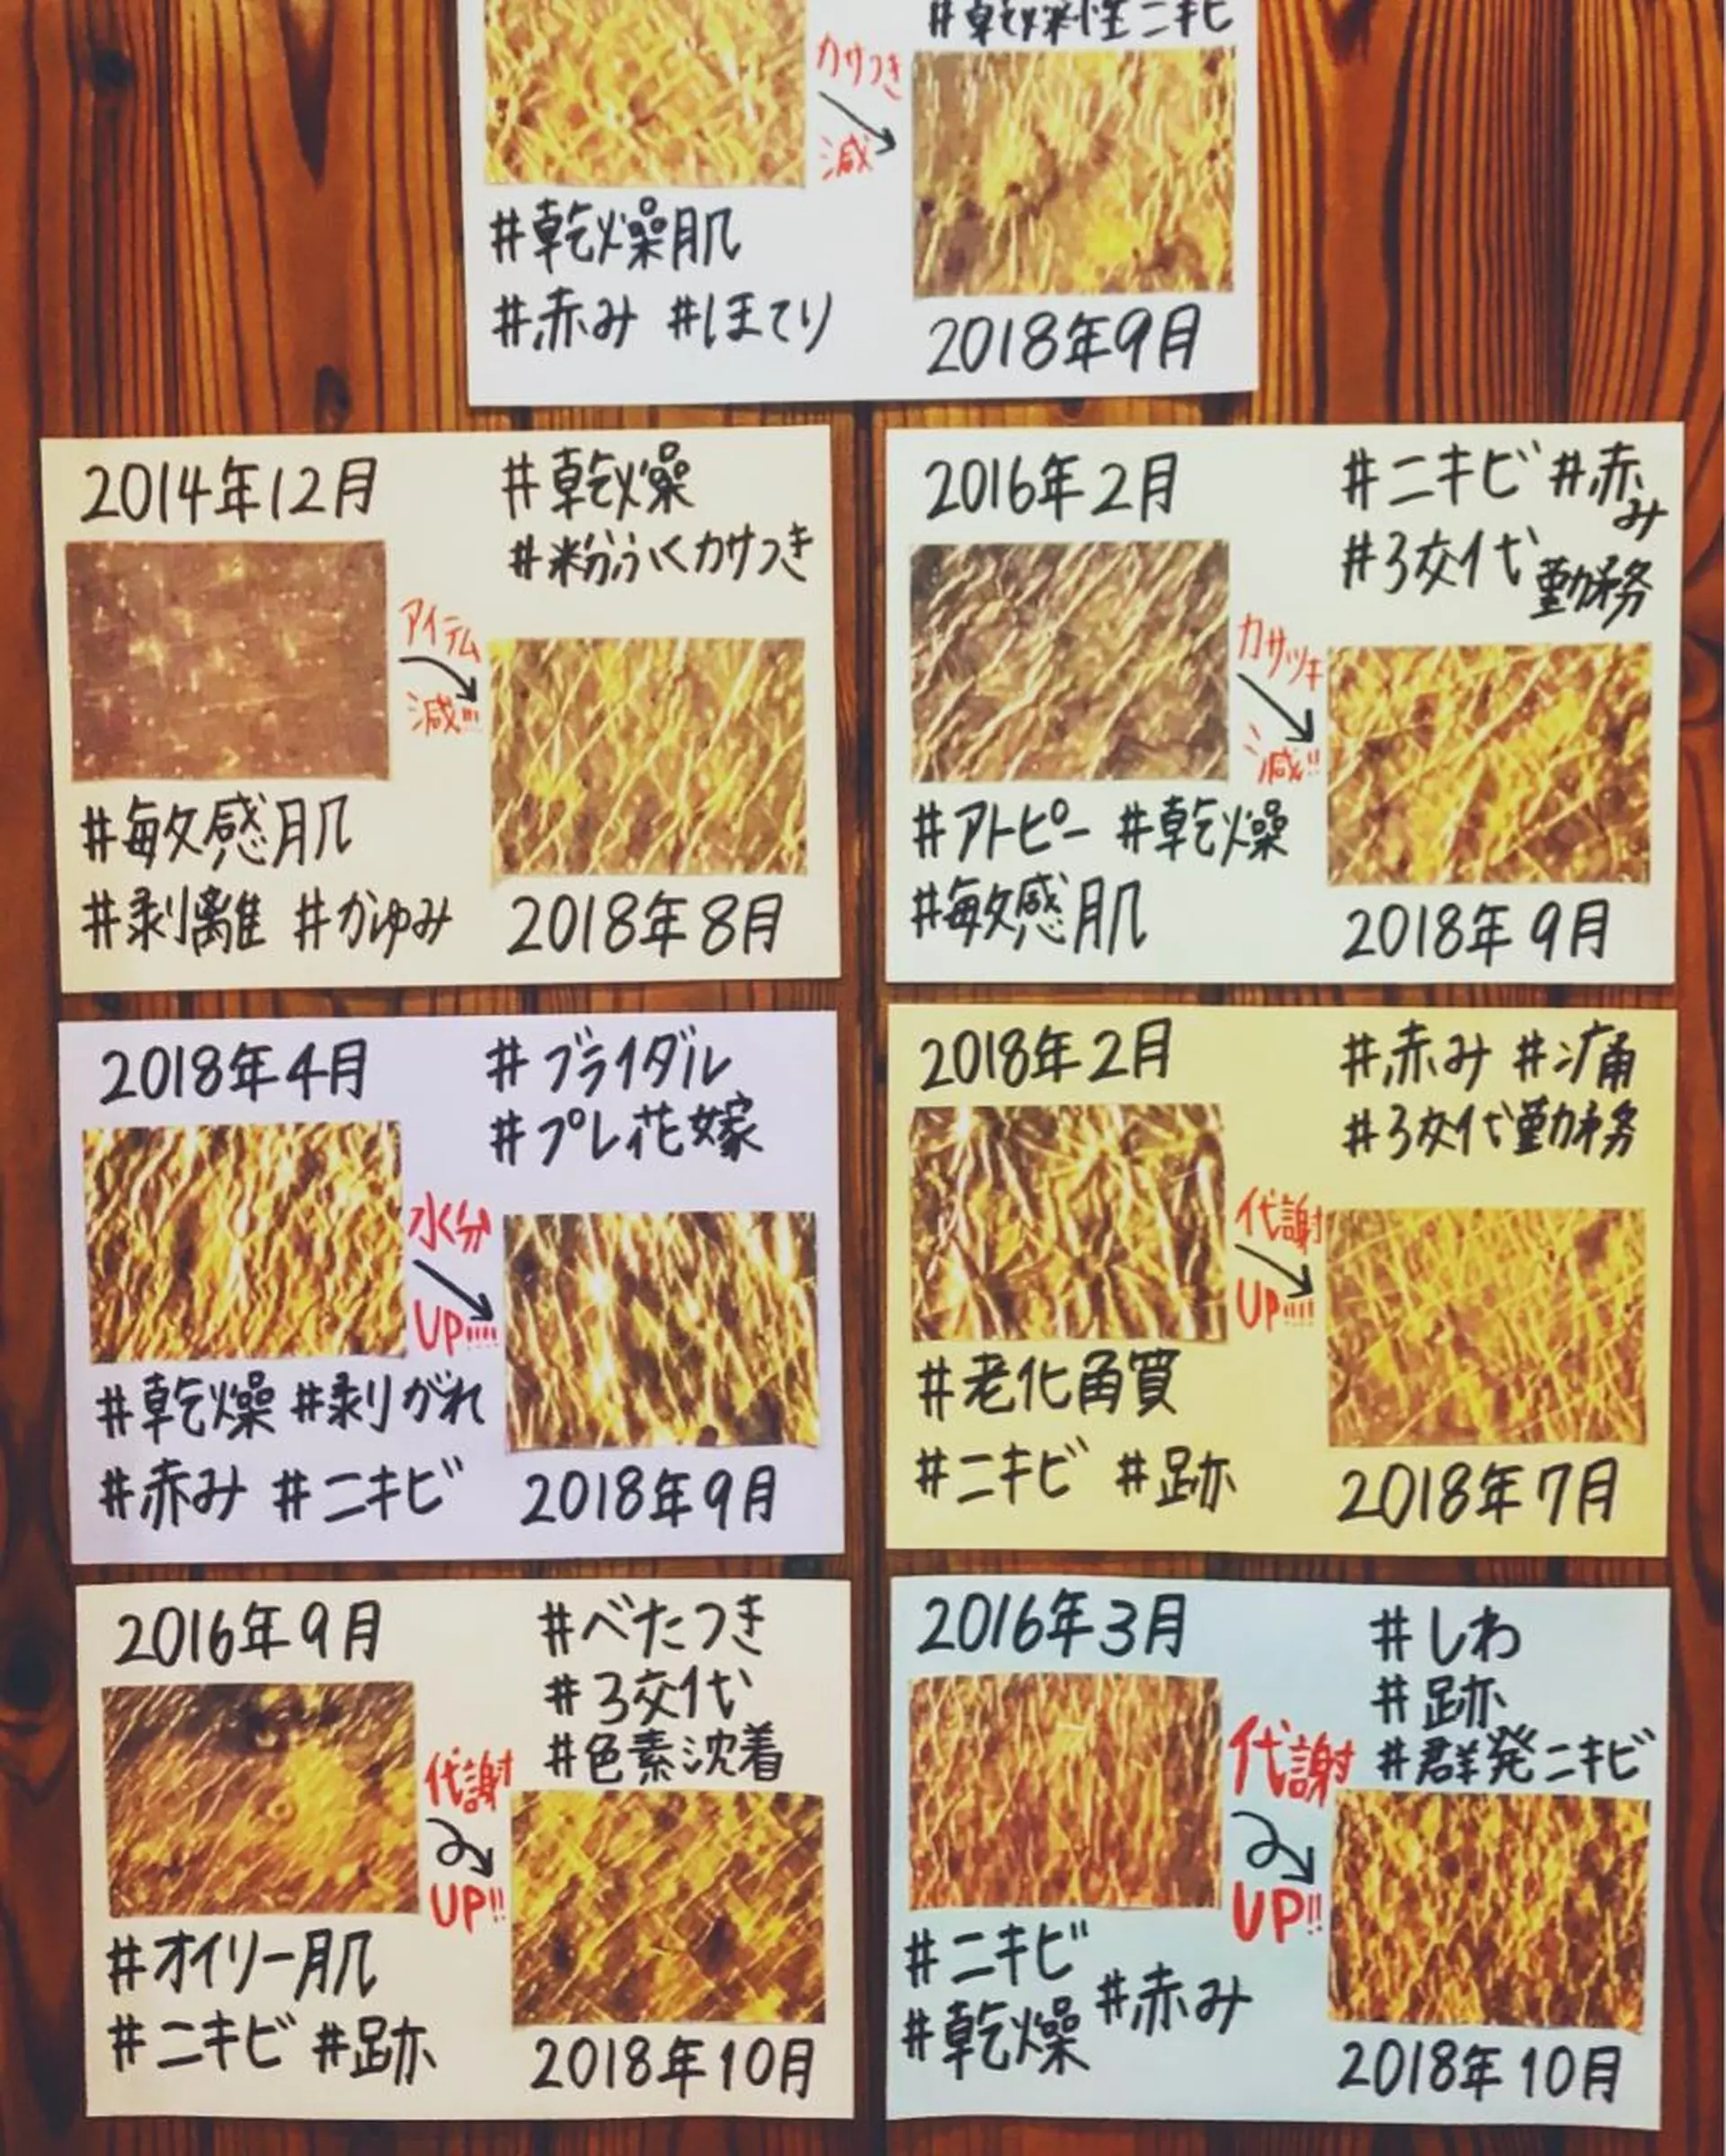 #乾燥性ニキビ
カサつき
減
#乾燥肌
#赤み #ほてり
2018年9月
2014年12月
#乾燥
#粉ふくカサつき
アイテム
減!!!
#敏感肌
#剥離 #かゆみ
2018年8月
2016年2月
#ニキビ #赤み
#3交代勤務
カサツキ
減!!
#アトピー #乾燥
#敏感肌
2018年9月
2018年4月
#ブライダル
#プレ花嫁
水分
UP!!!!
#乾燥 #剥がれ
#赤み #ニキビ
2018年9月
2018年2月
#赤み #痛
#3交代勤務
代謝
UP!!!!
#老化角質
#ニキビ #跡
2018年7月
2016年9月
#べたつき
#3交代
#色素沈着
代謝
UP!!
#オイリー肌
#ニキビ #跡
2018年10月
2016年3月
#しわ
#跡
#群発ニキビ
代謝
UP!!
#ニキビ
#乾燥 #赤み
2018年10月